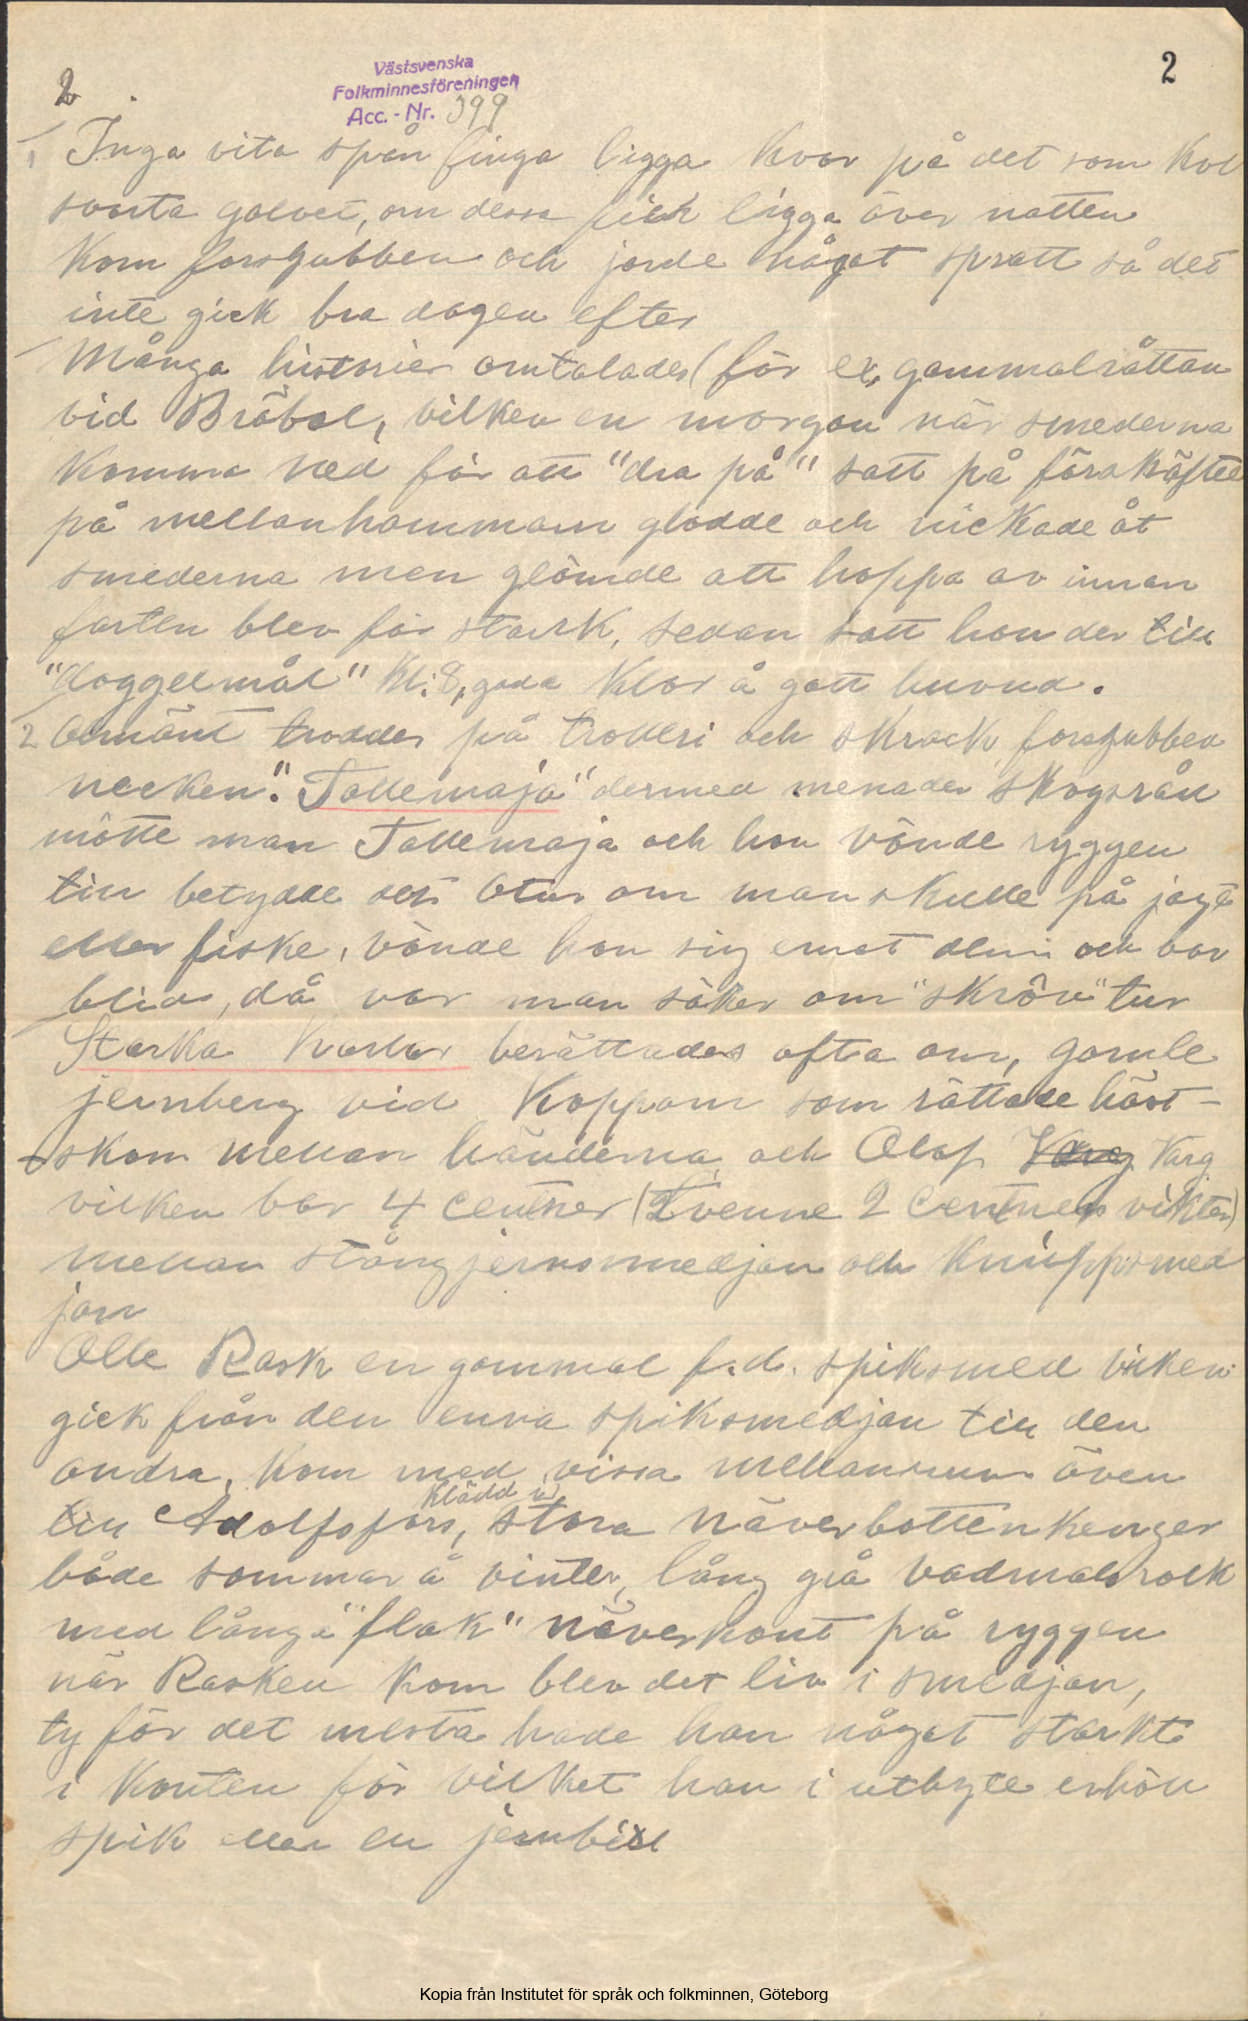 2
2
Västsvenska
Folkminnesföreningen
Acc. - Nr. 399
1 Inga vita spån finga ligga kvar på det som kol
svarta golvet, om dessa fick ligga över natten
kom forsgubben och jorde något spratt så det
inte gick bra dagen efter
Många historier omtalades (för ex, gammalråttan
vid Bråbol, vilken en morgon när smederna
komma ned för att "dra på" satt på förakäften
på mellanhammarn glodde och nickade åt
smederna men glömde att hoppa av innan
farten blev för stark, sedan satt hon der till
"doggelmål" kl: 8, goda klor å gott huvud.
2 Almänt troddes på trolleri och skrock, forsgubben
necken". Tallemaja" dermed menades skogsrån
mötte man Tallemaja och hon vände ryggen
till betydde det otur om man skulle på jagt
eller fiske, vände hon sig emot dem och var
blid, då var man säker om "skröv" tur
Starka karlar berättades ofta om, gamle
jernberg vid Koppom som rättade häst-
skom mellan händerna, och Olof Varg Varg
vilken bar 4 centner (tvenne 2 centners vikter)
mellan stångjernsmedjan och knippsmed
jan
Olle Rask en gammal f.d. spiksmed vilken
gick från den enna spiksmedjan till den
andra, kom med vissa mellanrum även
klädd i
till Adolfsfors, stora näverbottenkenger
både sommar å vinter, lång grå vadmalsrock
med långa "flak" näverkont på ryggen
när Rasken kom blev det liv i smedjan,
ty för det mesta hade han något starkt
i konten för vilket han i utbyte erhöll
spik eller en jernbit
Kopia från Institutet för språk och folkminnen, Göteborg